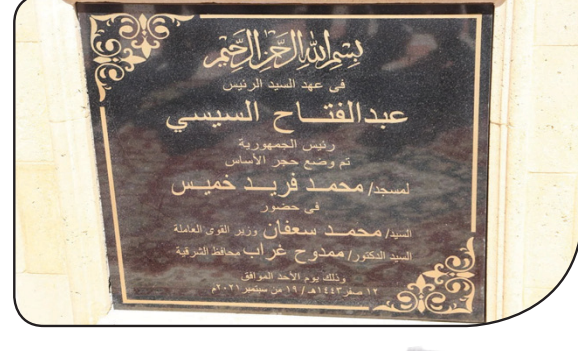 بسم الله الرحمن الرحيم
فى عهد السيد الرئيس
عبدالفتاح السيسي
رئيس الجمهورية
تم وضع حجر الأساس
لمسجد/ محمد فريد خميس
فى حضور
السيد/ محمد سعفان وزير القوى العاملة
السيد الدكتور/ ممدوح غراب محافظ الشرقية
وذلك يوم الأحد الموافق
١٢ صفر ١٤٤٣هـ / ١٩ من سبتمبر ٢٠٢١م